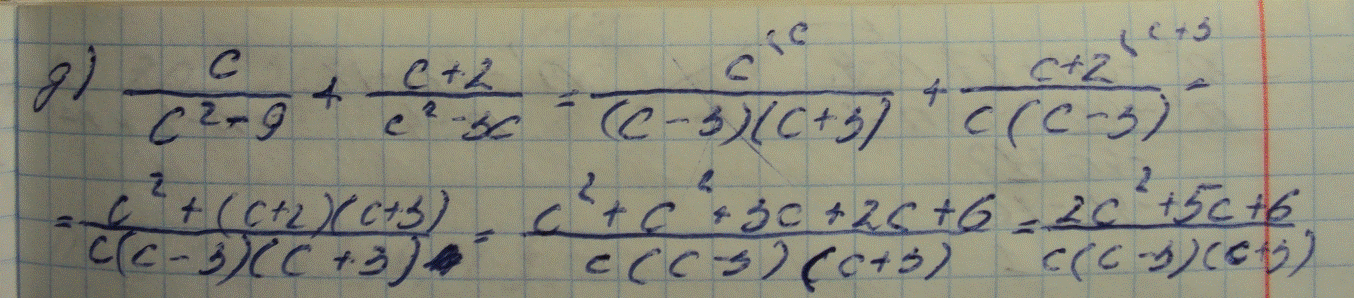 д) c/(c²-9) + (c+2)/(c²-3c) = c^{\c}/((c-3)(c+3)) + (c+2)^{\c+3}/(c(c-3)) =
= (c²+(c+2)(c+3))/(c(c-3)(c+3)) = (c²+c²+3c+2c+6)/(c(c-3)(c+3)) = (2c²+5c+6)/(c(c-3)(c+3))